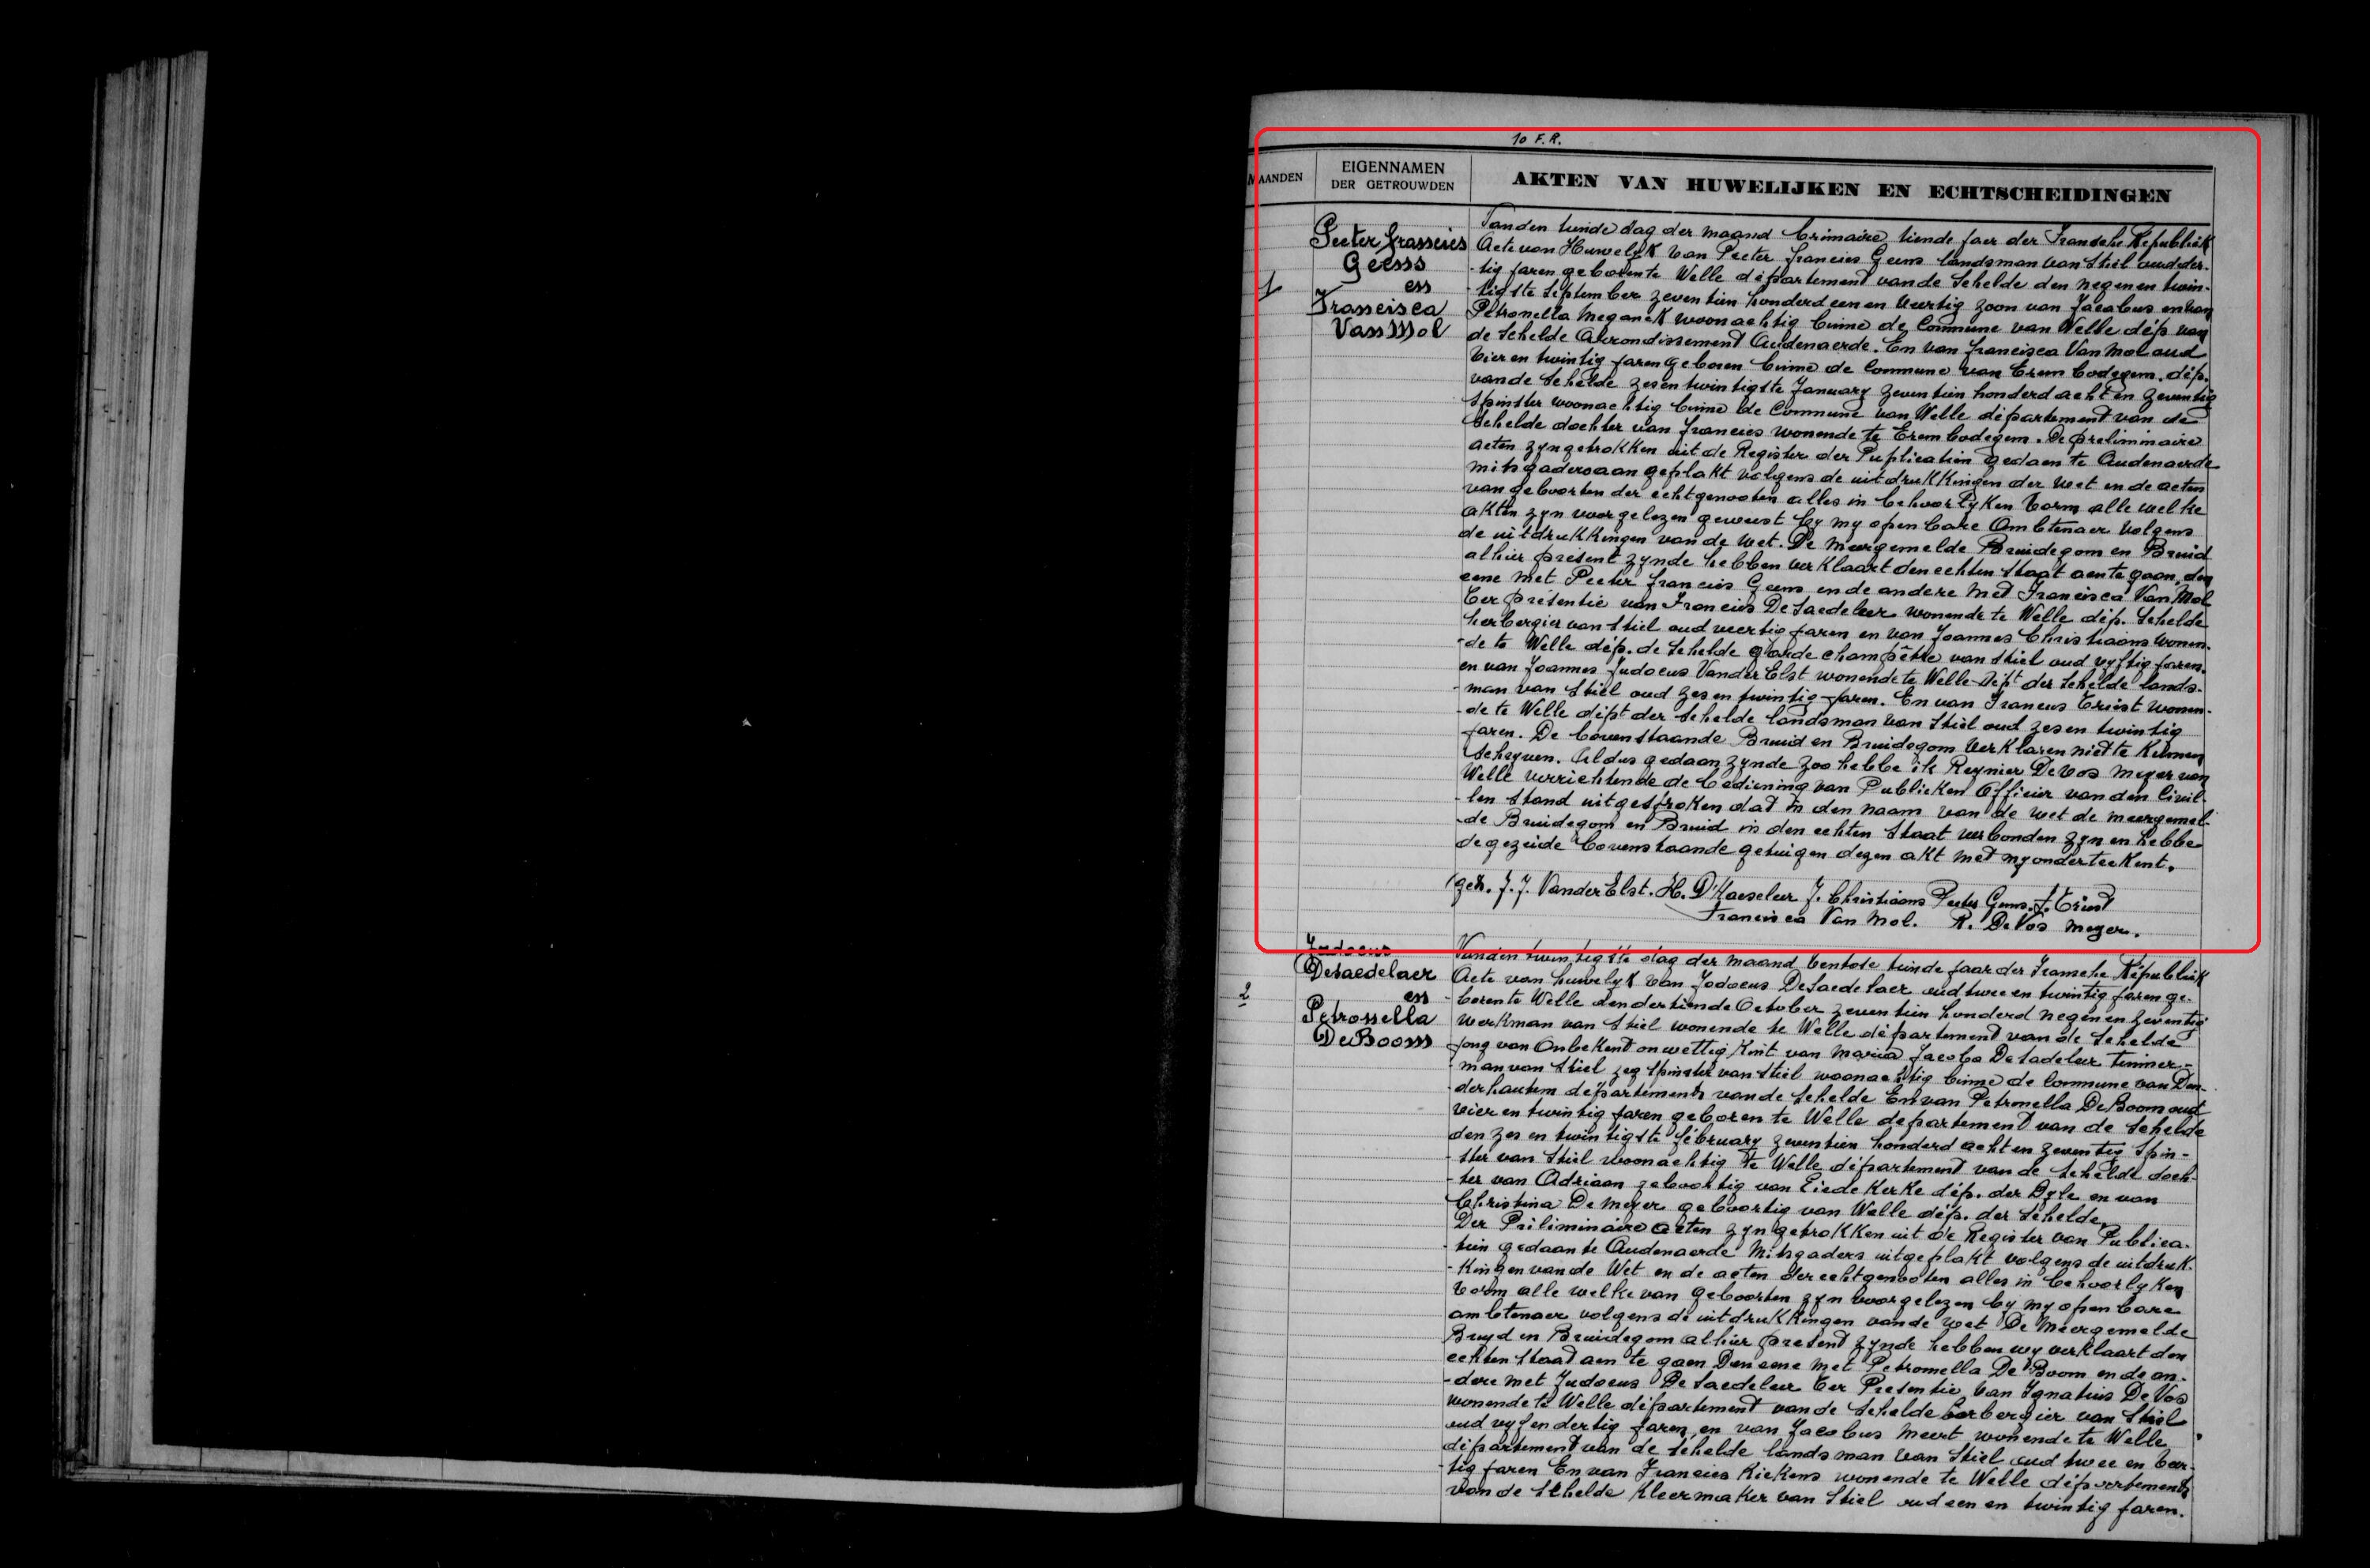 10 F.R.
MAANDEN
EIGENNAMEN
DER GETROUWDEN
AKTEN VAN HUWELIJKEN EN ECHTSCHEIDINGEN
1
Peeter Francies
Geens
en
Francisca
Van Mol
Vanden tiende dag der maand brimaire tiende jaer der Fransche Républiek
Acte van Huwelyk van Peeter francies Geens landsman van Stiel oud der-
-tig jaren geboren te Welle département vande Schelde den negen en twin-
-tigste September zeventien honderd een en veertig zoon van Jacobus en van
Petronella Meganck woonachtig binne de Commune van Welle dép van
de Schelde Akrondissement Audenaerde. En van francisca Van Mol oud
vier en twintig jaren geboren binne de Commune van Erembodegem. dép.
vande Schelde zesentwintigste January zeventien honderd acht en zeventig
Spinster woonachtig binne de Commune van Welle département van de
Schelde dochter van francies wonende te Erembodegem. De préliminaire
acten zyn getrokken uit de Register der Puplicatien gedaen te Audenaerde
mitsgaders aangeplakt volgens de uitdrukkingen der wet en de acten
van geboorten der echtgenooten alles in behoorlyken vorm alle welke
akten zyn voorgelezen geweest by my openbare Ambtenaer volgens
de uitdrukkingen van de wet. De meergemelde Bruidegom en Bruid
alhier présent zynde hebben verklaart den echten staat aen te gaan, den
eene met Peeter francies Geens en de andere met Francisca Van Mol
ter présentie van Francies De Saedeleer wonende te Welle dép. Schelde
herbergier van Stiel oud veertig jaren en van Joannes Christiaans wonen-
-de te Welle dép. de Schelde garde champêtre van Stiel oud vyftig jaren.
en van Joannes Judocus Vander Elst wonende te Welle dépt der Schelde lands-
-man van Stiel oud zes en twintig jaren. En van Francus Criest wonen-
-de te Welle dépt der Schelde landsman van Stiel oud zes en twintig
jaren. De bovenstaande Bruid en Bruidegom verklaren niet te kunnen
schryven. Aldus gedaan zynde zoo hebbe ik Reynier De Vos meyer van
Welle verrichtende de bediening van Publieken Officier van den Civil-
-len stand uitgesproken dat in den naam van de wet de meergemel-
-de Bruidegom en Bruid in den echten staat verbonden zyn en hebbe
de gezeide bovenstaande getuigen dezen akt met my onderteekent.
(get. J.J. Vander Elst. H. D'Kaeseleer J. Christiaans Peeter Geens. F. Criest
Francisca Van Mol. R. De Vos Meyer.
2
Judocus
Desaedelaer
en
Petronella
De Boom
Vanden twintigste dag der maand ventose tiende jaar der Fransche Républiek
Acte van huwelyk van Jodocus De Saedelaer oud twee en twintig jaren ge-
-boren te Welle den dertiende October zeventien honderd negen en zeventig
werkman van Stiel wonende te Welle département van de Schelde
jong van Onbekent onwettig kint van Maria Jacoba De Sadeleer timmer-
-man van Stiel zeg Spinster van Stiel woonachtig binne de Commune van Den-
-derhautem départements vande Schelde En van Petronella De Boom oud
vier en twintig jaren geboren te Welle département van de Schelde
den zes en twintigste february zeventien honderd acht en zeventig Spin-
-ster van Stiel woonachtig te Welle département van de Schelde doch-
-ter van Adriaan geboortig van Liedekerke dép. der Dyle en van
Christina De Meyer geboortig van Welle dép. der Schelde.
Der Préliminaire acten zyn getrokken uit de Register van Publica-
-tien gedaan te Audenaerde Mitsgaders uitgeplakt volgens de uitdruk-
-kingen vande Wet en de acten der echtgenooten alles in behoorlyken
vorm alle welke van geboorten zyn voorgelezen by my openbare
ambtenaer volgens de uitdrukkingen vande wet De Meergemelde
Bruyd en Bruidegom alhier present zynde hebben wy verklaart den
echten staat aen te gaen Den eene met Petronella De Boom en de an-
-dere met Judocus De Saedeleer ter Presentie van Ignatius De Vos
wonende te Welle département vande Schelde herbergier van Stiel
oud vyf en dertig jaren, en van Jacobus Meert wonende te Welle
département van de Schelde landsman van Stiel oud twee en veer-
-tig jaren En van Francies Kiekens wonende te Welle départements
vande Schelde Kleermaker van Stiel oud een en twintig jaren.